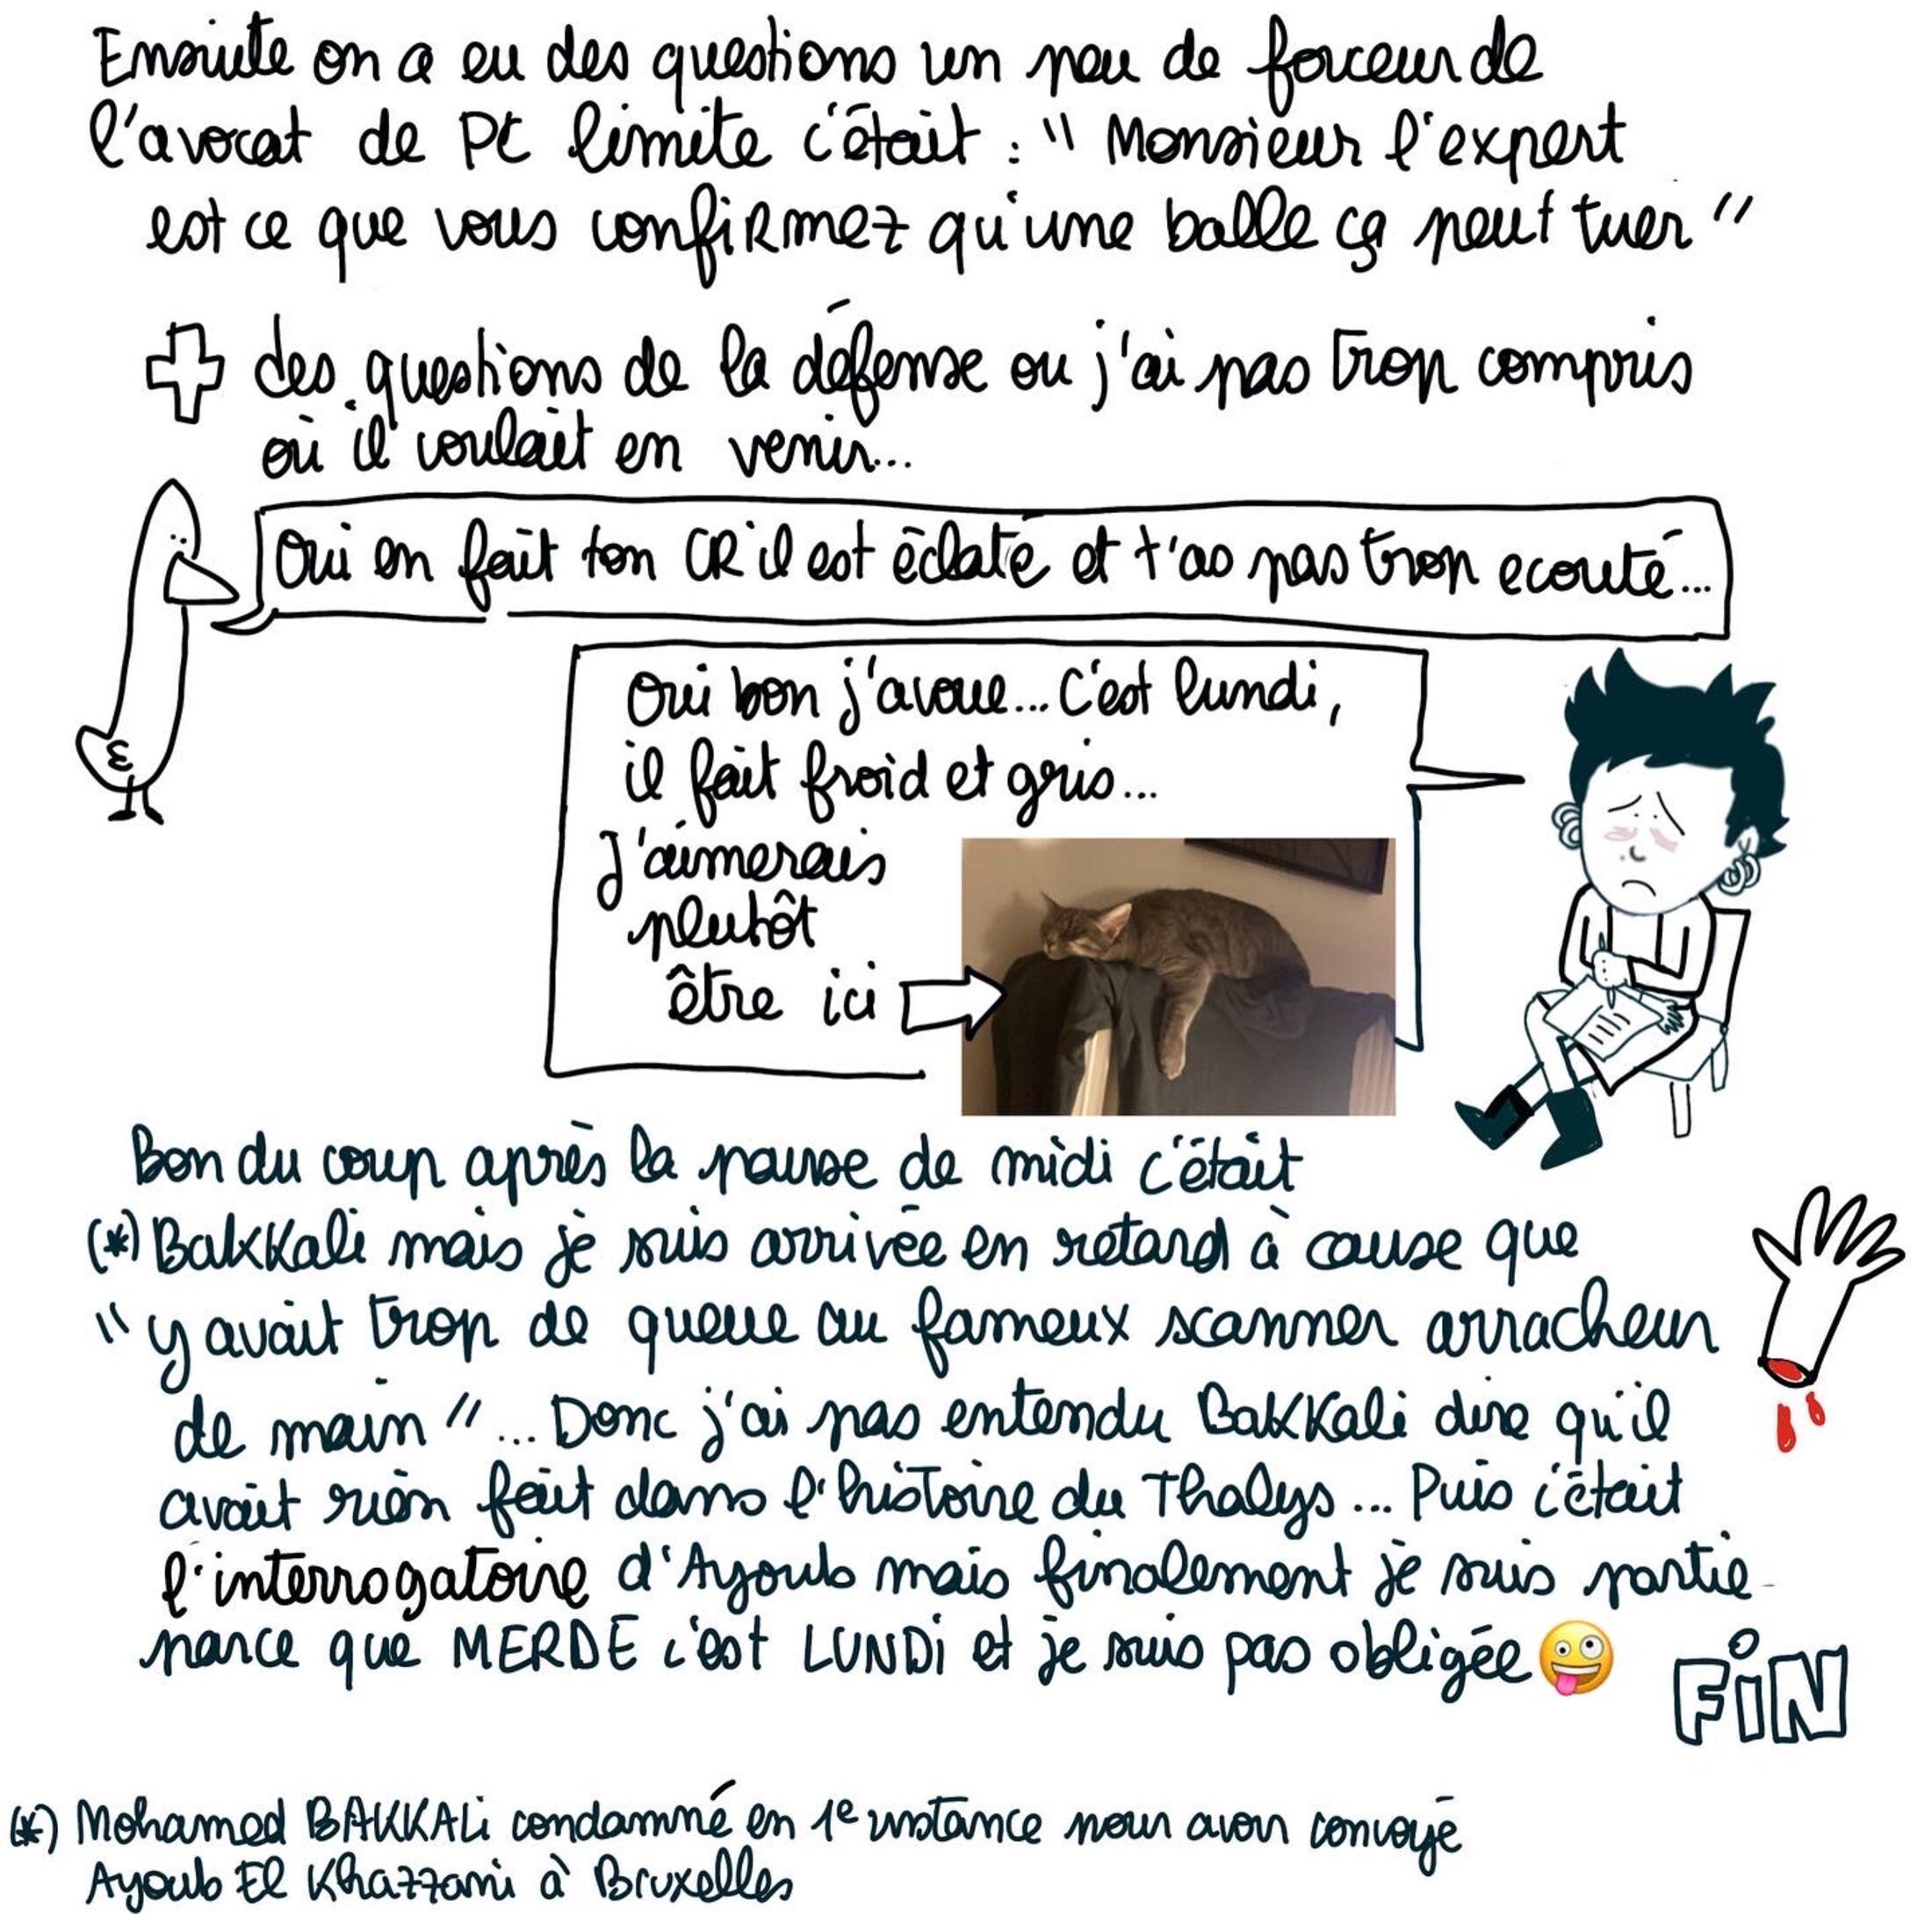 Ensuite on a eu des questions un peu de forceur de
l'avocat de PC limite c'était : " Monsieur l'expert
est ce que vous confirmez qu'une balle ça peut tuer "
+ des questions de la défense ou j'ai pas trop compris
où il voulait en venir...
Oui en fait ton CR il est éclaté et t'as pas trop ecouté...
Oui bon j'avoue... C'est lundi,
il fait froid et gris...
J'aimerais
plutôt
être ici
Bon du coup après la pause de midi c'était
(*) Bakkali mais je suis arrivée en retard à cause que
" y avait trop de queue au fameux scanner arracheur
de main "... Donc j'ai pas entendu Bakkali dire qu'il
avait rien fait dans l'histoire du Thalys... Puis c'était
l'interrogatoire d'Ayoub mais finalement je suis partie
parce que MERDE c'est LUNDi et je suis pas obligée 🤪
FiN
(*) Mohamed BAKKALi condamné en 1e instance pour avoir convoyé
Ayoub El Khazzani à Bruxelles